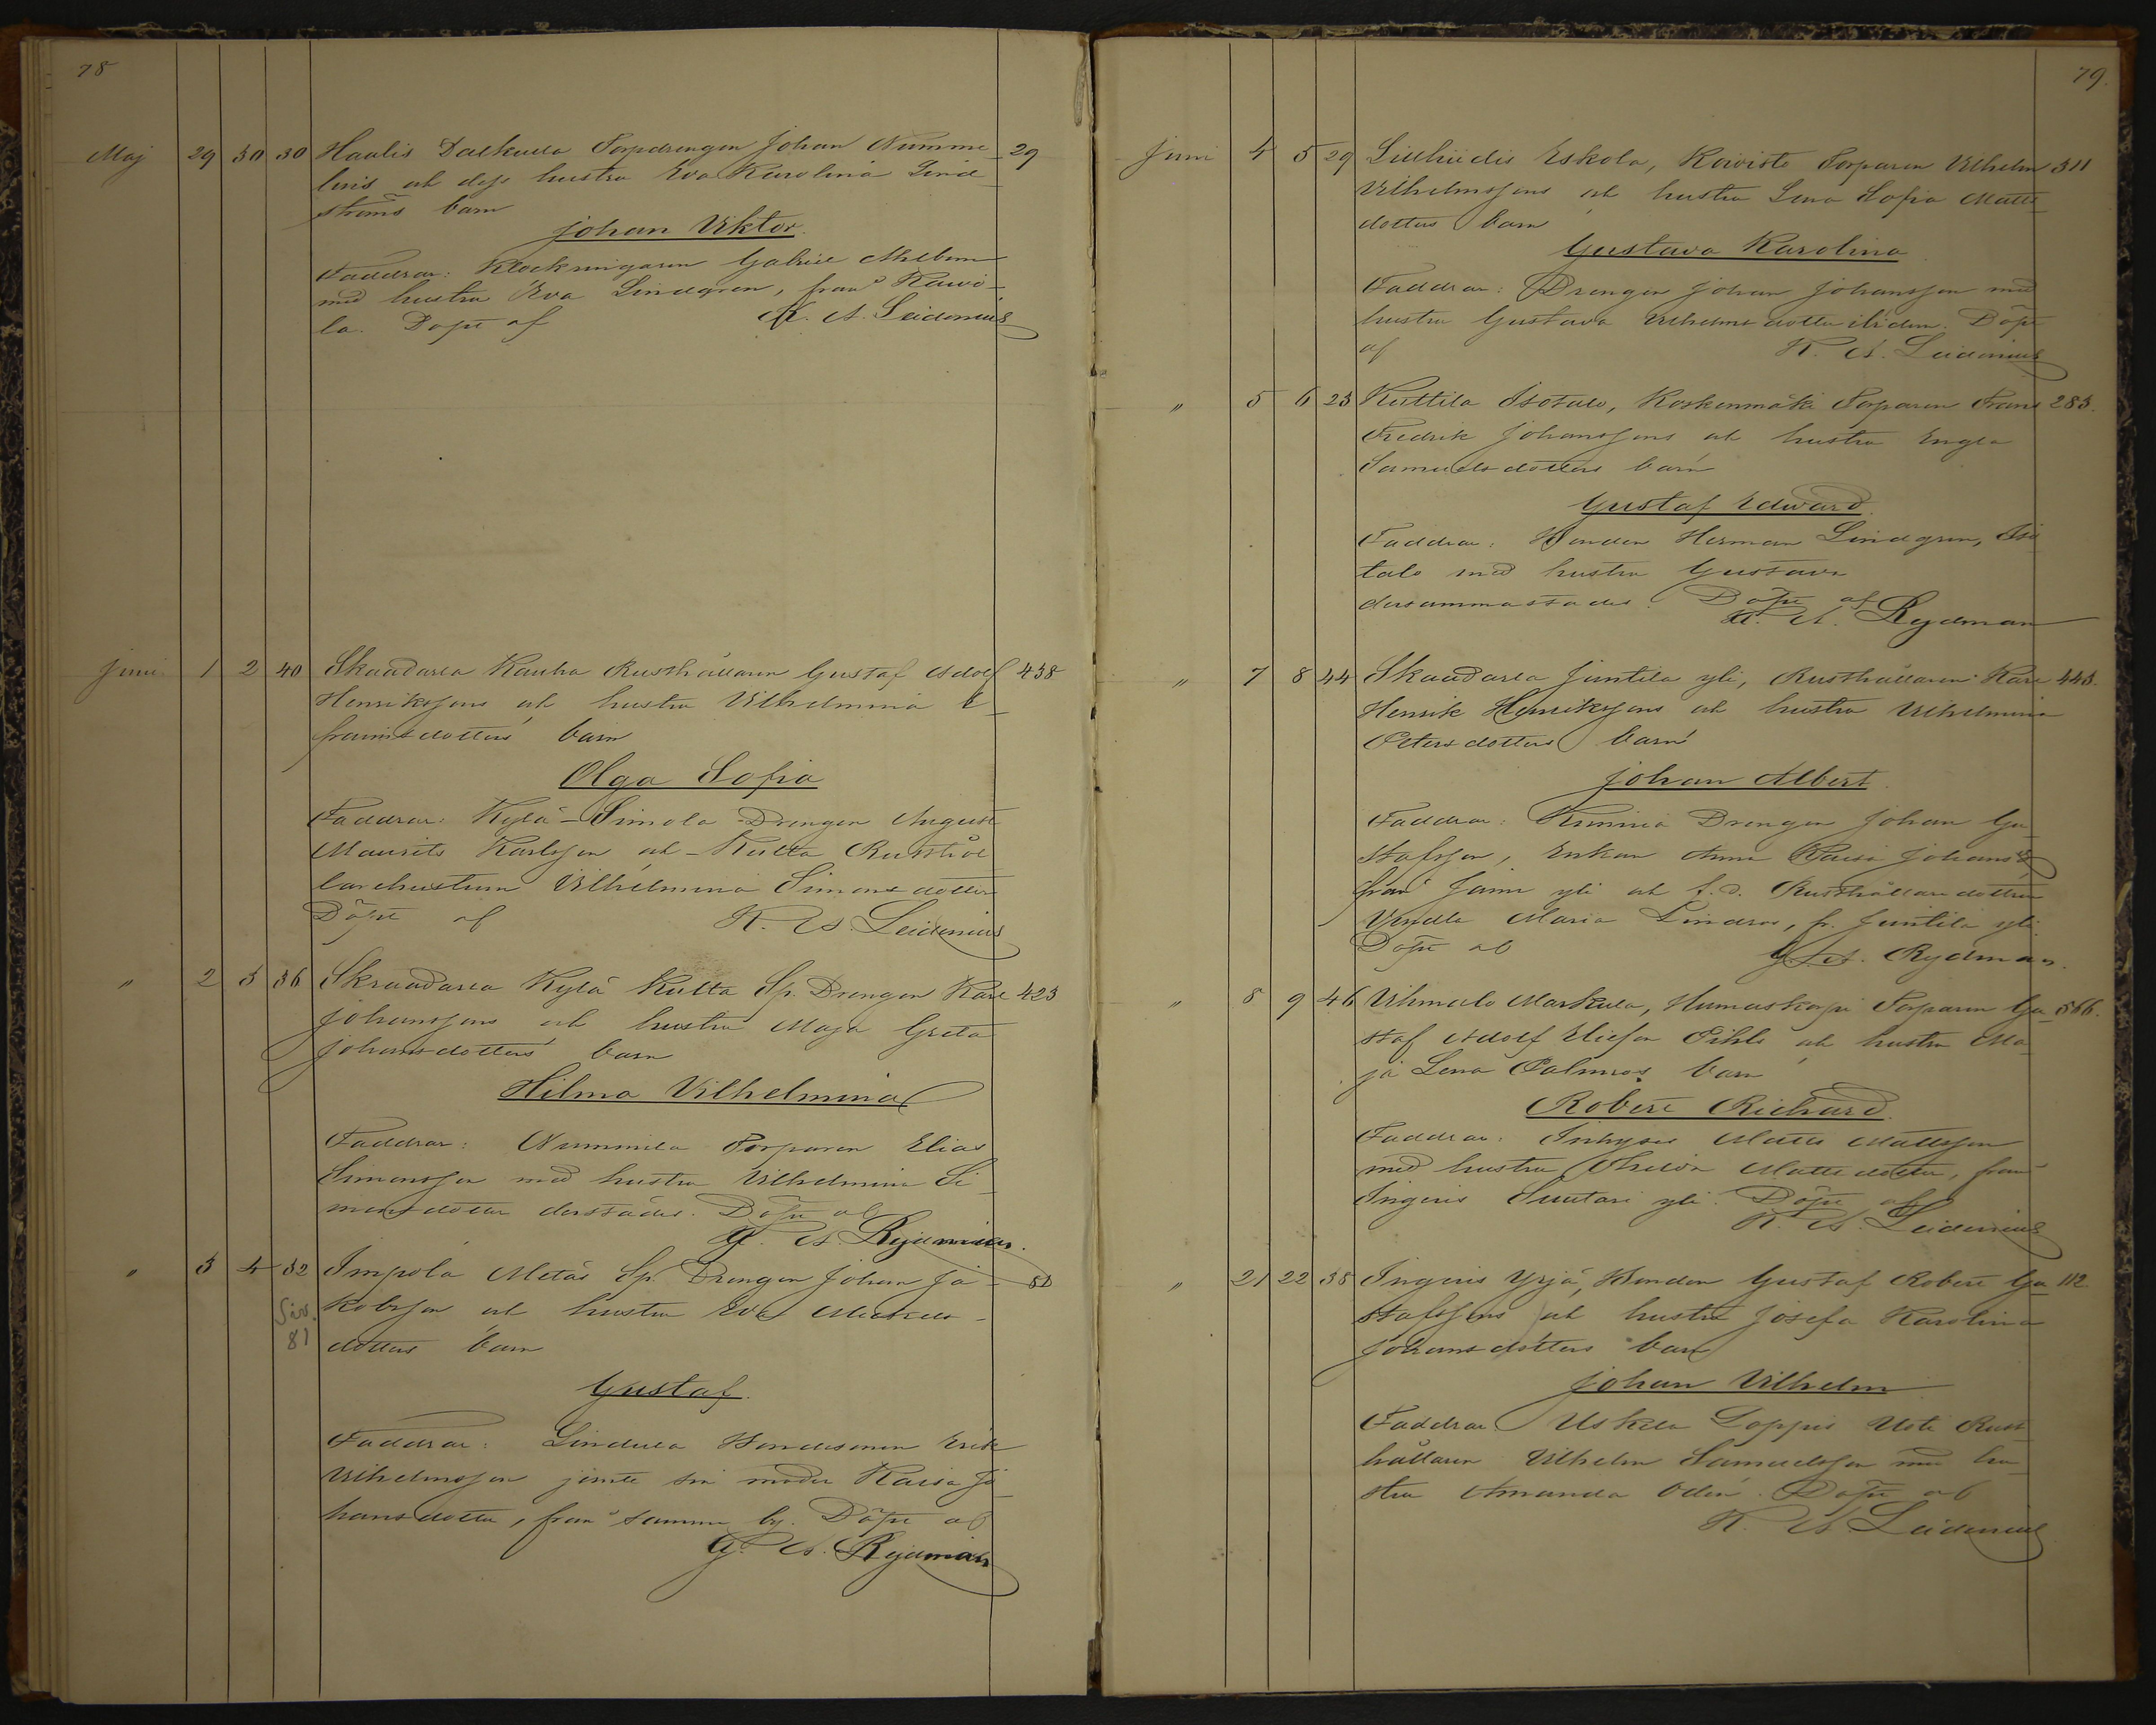 78
Maj 29 30 30 Haalis Dalkulla Torpdrengen Johan Numme- 29
lins och dess hustru Eva Karolina Lind-
ströms barn
Johan Viktor.
Faddrar: Klockringaren Gabriel Ahlbom
med hustru Eva Lindgren, från Rawi-
la. Döpt af K. A. Leidenius
Juni 1 2 40 Skraddarla Rauha Rusthållaren Gustaf Adolf 438
Henrikssons och hustru Vilhelmina E-
fraimsdotters barn
Olga Sofia
Faddrar: Kylä-Simola Drengen August
Maurits Karlsson och Kulta Rusthål-
larehustrun Vilhelmina Simonsdotter
Döpt af K. A. Leidenius
" 2 3 36 Skraddarla Kylä Kulta Sp. Drengen Karl 423
Johanssons och hustru Maja Greta
Johansdotters barn
Hilma Vilhelmina
Faddrar: Nummila Torparen Elias
Simonsson med hustru Vilhelmina Si-
monsdotter derstädes. Döpt af
G. A. Rydman.
" 3 4 32 Impola Metäs Sp. Drengen Johan Ja-
kobsson och hustru Eva Mickels-
Siv. 81 dotters barn
Gustaf.
Faddrar: Lindula Bondesonen Erik
Vilhelmsson jemte sin moder Kaisa Jo-
hansdotter, från samma by. Döpt af
G. A. Rydman
79.
Juni 4 5 29 Liuhiidis Eskola, Koivisto Torparen Vilhelm 311
Vilhelmssons och hustru Lena Sofia Matts-
dotters barn
Gustava Karolina
Faddrar: Drengen Johan Johansson med
hustru Gustava Vilhelmsdotter ibidem. Döpt
af K. A. Leidenius
" 5 6 23 Kuttila Isotalo, Koskenmäki Torparen Frans 283.
Fredrik Johanssons och hustru Engla
Samuelsdotters barn
Gustaf Edward.
Faddrar: Bonden Herman Lindgren, Iso-
talo med hustru Gustava
dersammastädes. Döpt af
G. A. Rydman
" 7 8 44 Skraddarla Juntila yli, Rusthållaren Karl 443.
Henrik Henrikssons och hustru Vilhelmina
Petersdotters barn
Johan Albert.
Faddrar: Drengen Johan Gu-
stafsson, Enkan Anna Kaisa Johansdr
från yli och f.d. Rusthållaredottren
Vendla Maria Lindros, fr. Juntila yli.
Döpt af G. A. Rydman.
" 8 9 46 Vihmalo Markula, Humaskorpi Torparen Gu- 566.
staf Adolf Eliesson Pihls och hustru Ma-
ja Lena Palmros barn
Robert Richard.
Faddrar: Inhyses Matts Mattsson
med hustru Mattsdotter, från
Ingeris Suutari yli. Döpt af
K. A. Leidenius
" 21 22 38 Ingeris Yrjä, Bonden Gustaf Robert Gu- 112
stafssons och hustru Josefa Karolina
Johansdotters barn
Johan Vilhelm
Faddrar: Uskela Loppis Uoti Rust-
hållaren Vilhelm Samuelsson med hu-
stru Amanda Oden. Döpt af
K. A. Leidenius